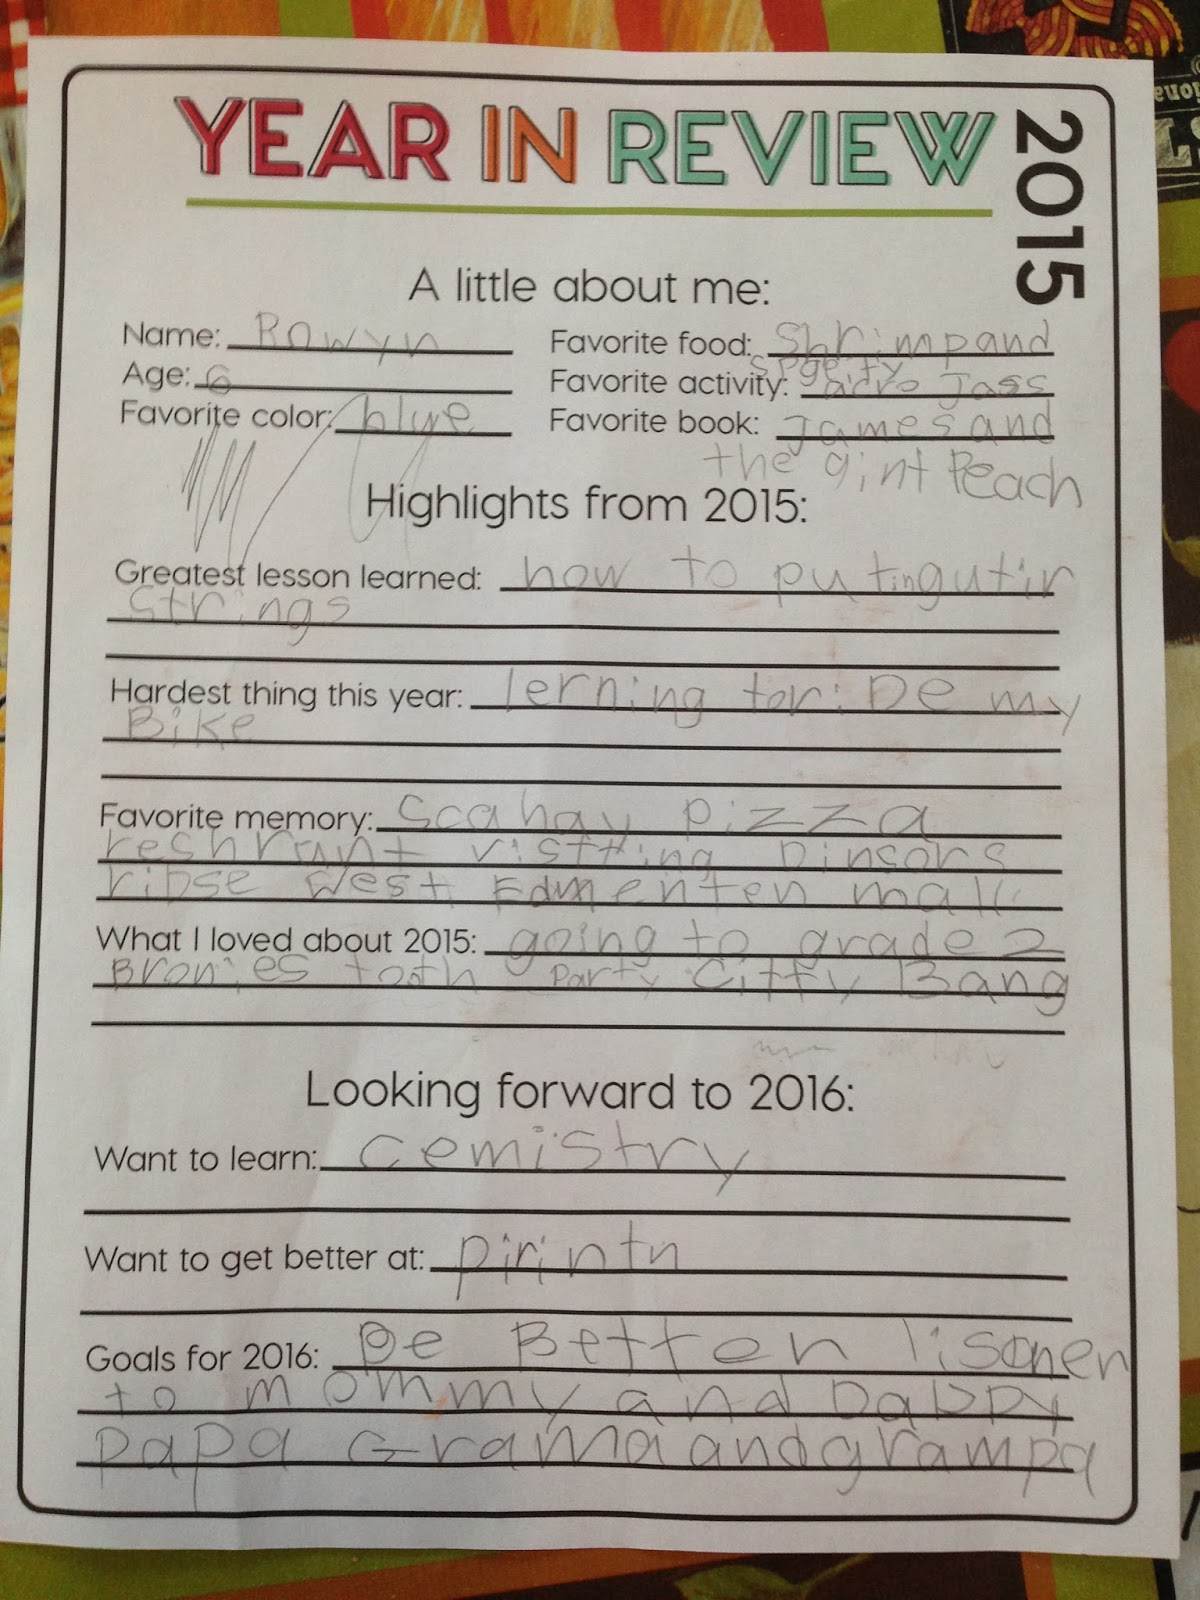 YEAR IN REVIEW
2015
A little about me:
Name: Rowyn
Favorite food: Shrimp and
spgetty
Age: 6
Favorite activity: Jass
Favorite color: blye
Favorite book: James and
the gint Peach
Highlights from 2015:
Greatest lesson learned: how to put in gutir
strings
Hardest thing this year: lerning to ride my
Bike
Favorite memory: Scahay pizza
reshraunt vistting Dinsors
ripse West Edmenten mall
What I loved about 2015: going to grade 2
Bronies tooth Party Citty Bang
Looking forward to 2016:
Want to learn: cemistry
Want to get better at: pirintn
Goals for 2016: Be Better lisoner
to mommy and Daddy
papa Grama and grampa